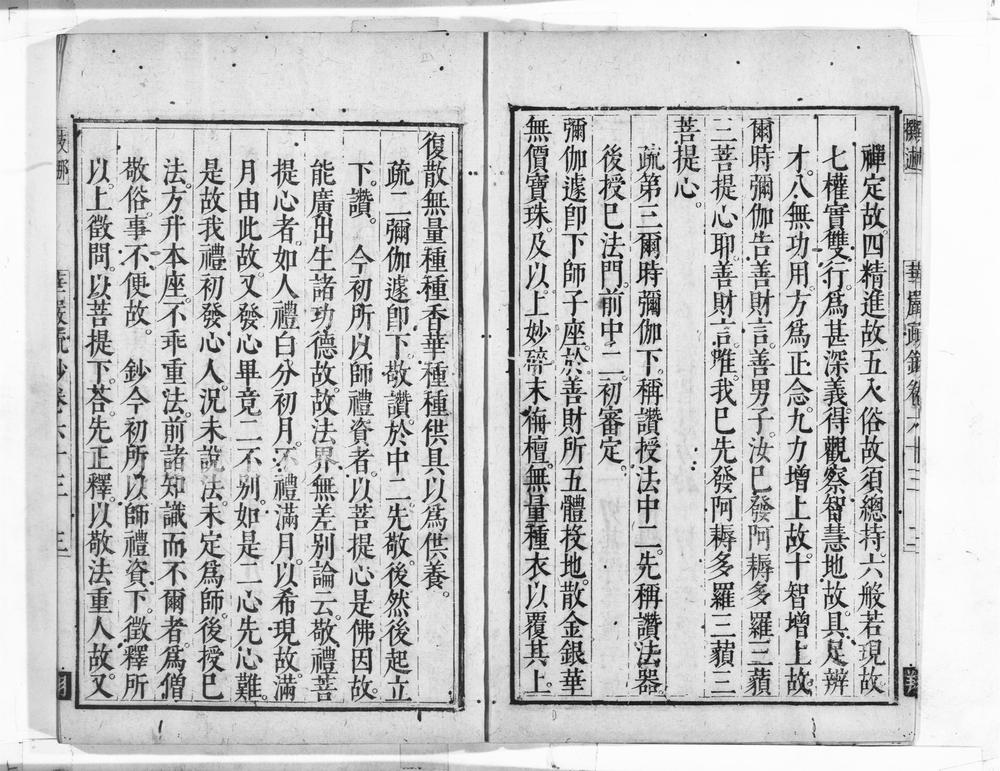 禪定故。四精進故。五入俗故須總持。六般若現故
七權實雙行爲甚深義。得觀察智慧地故。具足辨
才。八無功用方爲正念。九力增上故。十智增上故
爾時彌伽告善財言。善男子。汝已發阿耨多羅三藐
三菩提心耶。善財言。唯。我已先發阿耨多羅三藐三
菩提心。
疏第三爾時彌伽下。稱讚授法中二。先稱讚法器。
後授已法門。前中二。初審定。
彌伽遽即下師子座。於善財所五體投地。散金銀華
無價寶珠。及以上妙碎末栴檀。無量種衣以覆其上。
華嚴疏鈔卷六十三
復散無量種種香華種種供具以爲供養。
疏二彌伽遽即下。敬讚。於中二。先敬。後然後起立
下。讚。今初所以師禮資者。以菩提心是佛因故
能廣出生諸功德故。故法界無差別論云。敬禮菩
提心者。如人禮白分初月。不禮滿月。以希現故。滿
月由此故。又發心畢竟二不別。如是二心先心難。
是故我禮初發心人。況未說法。未定爲師。後授已
法。方升本座。不乖重法。前諸知識而不爾者。爲僧
敬俗。事不便故。鈔今初所以師禮資下。徵釋所
以上徵問。以菩提下。答。先正釋。以敬法重人故。又
華嚴疏鈔卷六十三 三